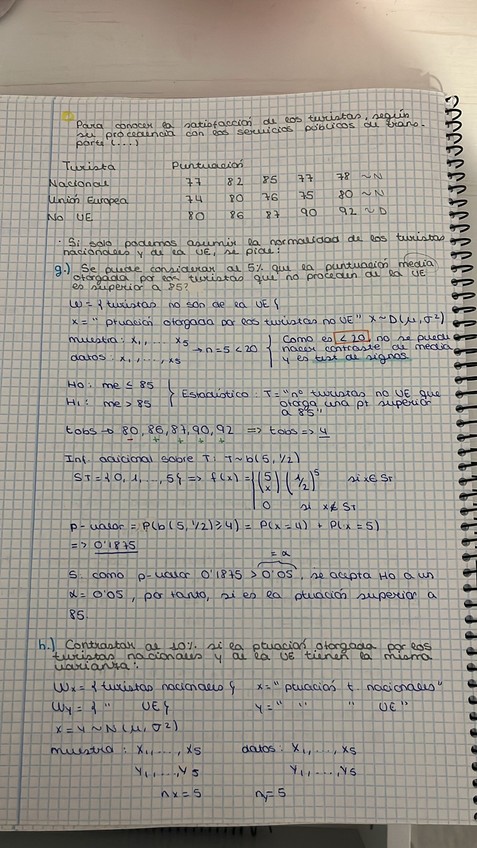 Para conocer la satisfacción de los turistas, según
su procedencia con los servicios públicos de trans-
porte (...)
Turista Puntuación
Nacional 77 82 85 77 78 ~ N
Unión Europea 74 80 76 75 80 ~ N
No UE 80 86 87 90 92 ~ D
· Si solo podemos asumir la normalidad de los turistas
nacionales y de la UE, se pide:
g.) Se puede considerar al 5% que la puntuación media
otorgada por los turistas que no proceden de la UE
es superior a 85?
W = { turistas no son de la UE {
X = "ptuación otorgada por los turistas no UE" X ~ D(μ, σ²)
muestra: X1, ..., X5
datos: x1, ..., x5 → n = 5 < 20 { Como es < 20 no se puede
hacer contraste de media
y es test de signos
H0: me ≤ 85
H1: me > 85 } Estadístico: T = "nº turistas no UE que
otorga una pt superior
a 85"
tobs → 80, 86, 87, 90, 92 => tobs => 4
- + + + +
Inf. adicional sobre T: T ~ b(5, 1/2)
ST = {0, 1, ..., 5{ => f(x) = (5 x) (1/2)^5 si x ∈ ST
0 si x ∉ ST
p-valor = P(b(5, 1/2) ≥ 4) = P(x = 4) + P(x = 5)
=> 0'1875
= α
S. como p-valor 0'1875 > 0'05, se acepta H0 a un
α = 0'05, por tanto, si es la ptuación superior a
85.
h.) Contrastar al 10% si la ptuación otorgada por los
turistas nacionales y de la UE tienen la misma
varianza:
Wx = { turistas nacionales { X = "ptuación t. nacionales"
Wy = { " UE { Y = " " " UE"
X = Y ~ N(μ, σ²)
muestra: X1, ..., X5 datos: x1, ..., x5
Y1, ..., Y5 Y1, ..., Y5
nx = 5 ny = 5